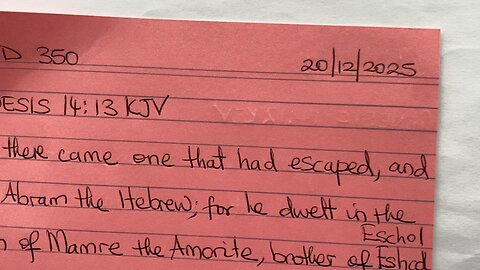 D 350 20/12/2025
ESIS 14:13 KJV
there came one that had escaped, and
Abram the Hebrew; for he dwelt in the
Eschol
n of Mamre the Amorite, brother of Eshcol